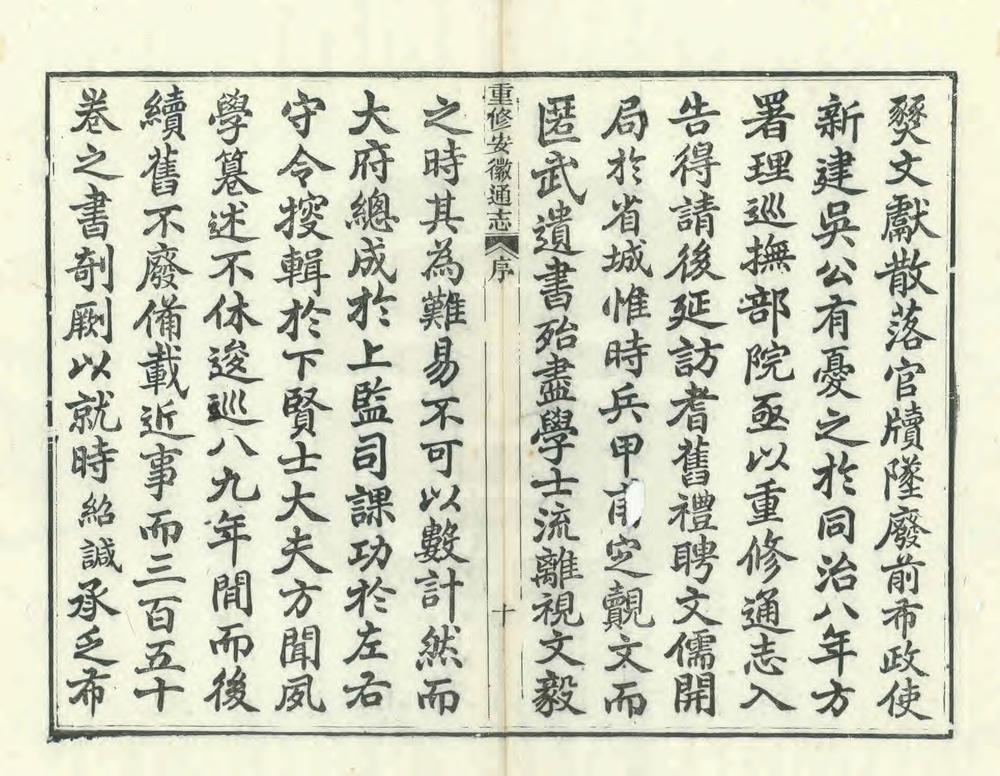 燹文獻散落官牘墜廢前布政使
新建吳公有憂之於同治八年方
署理巡撫部院亟以重修通志入
告得請後延訪耆舊禮聘文儒開
局於省城惟時兵甲甫定覿文而
匿武遺書殆盡學士流離視文毅
重修安徽通志 序 十
之時其為難易不可以數計然而
大府總成於上監司課功於左右
守令搜輯於下賢士大夫方聞夙
學篹述不休逡巡八九年間而後
續舊不廢備載近事而三百五十
卷之書剞劂以就時紹諴承乏布